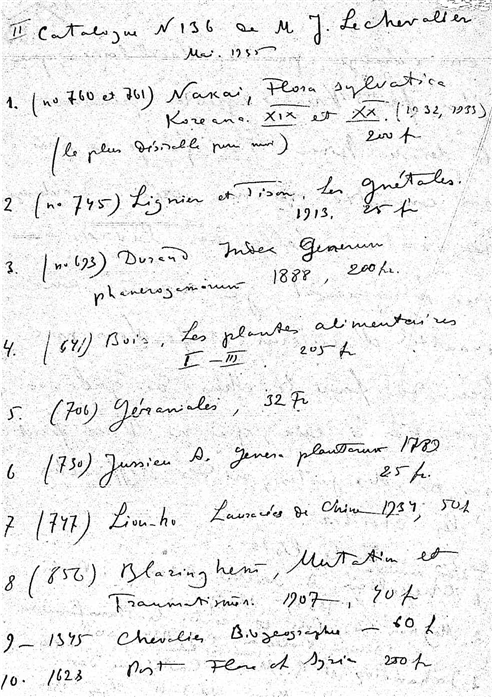 II Catalogue N 136 de M J. Lechevalier
Mai. 1935
1. (no 760 et 761) Nakai, Flora sylvatica
Koreana. XIX et XX. (1932, 1933)
(le plus désirable pour moi) 200 f
2 (no 745) Lignier et Tison, Les gnétales.
1913, 25 fr
3. (no 693) Durand Index Generum
phanerogamorum 1888, 200 fr.
4. (641) Bois, Les plantes alimentaires
I - III. 205 fr
5. (706) Géraniales, 32 Fr
6 (730) Jussieu A. genera plantarum 1789
25 fr.
7 (747) Liou-ho Lauracées de Chine 1934, 50f
8 (856) Blaringhem, Mutation et
Traumatismes. 1907, 40 f
9 - 1345 Chevalier Biogeographie - 60 f
10. 1623 Post Flora of Syria 200 f